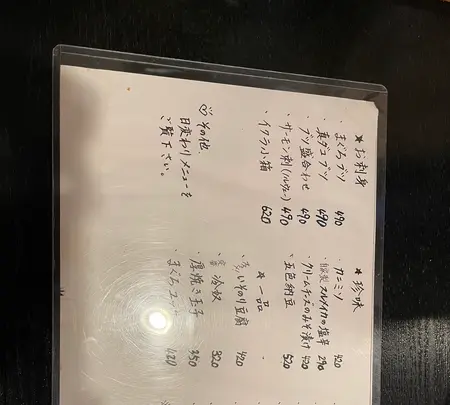 ★お刺身
・まぐろブツ 490
・真ダコブツ 490
・ブツ盛合わせ 490
・サーモン刺(ノルウェー) 490
・イクラ小箱 620
♡その他、
日変わりメニューを
ご覧下さい。
★珍味
・カニミソ 420
スルメイカの塩辛 290
・クリームチーズのみそ漬け 420
・五色納豆 520
★一品
・青いそのり豆腐 420
・冷奴 320
・厚焼き玉子 350
・まぐろユッケ 620